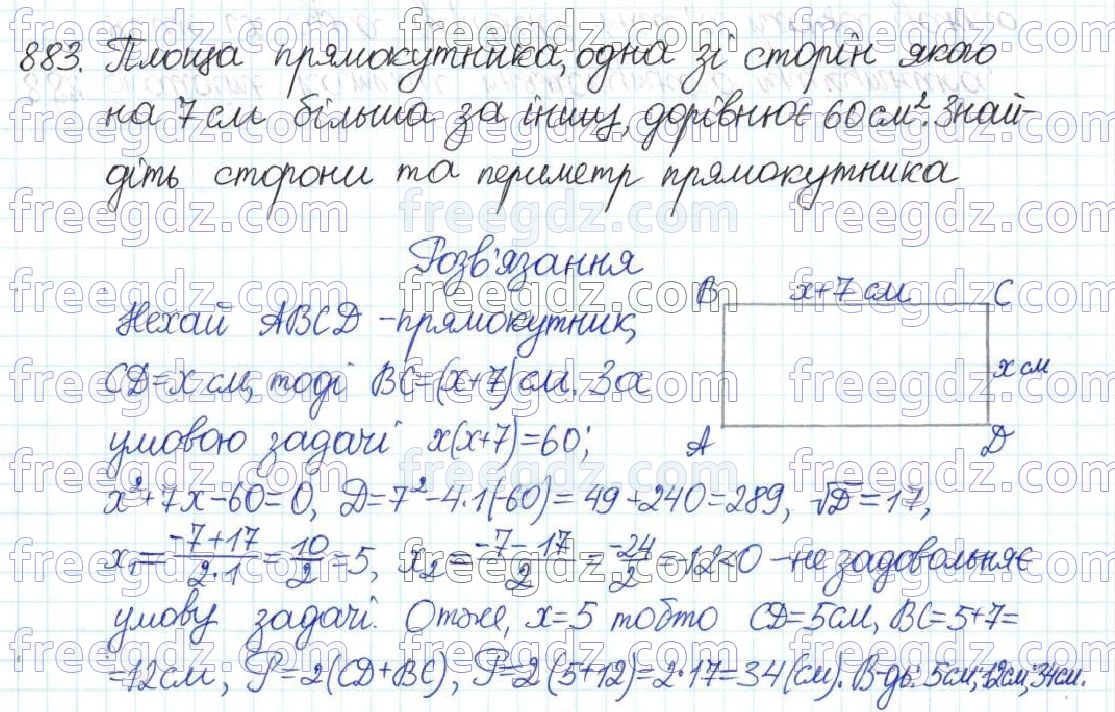 883. Площа прямокутника, одна зі сторін якого
на 7 см більша за іншу, дорівнює 60 см². Знай-
діть сторони та периметр прямокутника
Розв'язання
Нехай ABCD - прямокутник,
CD=x см, тоді BC=(x+7) см. За
умовою задачі x(x+7)=60;
B x+7 см C
x см
A D
x²+7x-60=0, D=7²-4·1(-60)=49+240=289, √D=17,
x₁=(-7+17)/(2·1)=10/2=5, x₂=(-7-17)/2=-24/2=-12<0 - не задовольняє
умову задачі. Отже, x=5 тобто CD=5см, BC=5+7=
=12см, P=2(CD+BC), P=2(5+12)=2·17=34(см). В-дь: 5см; 12см; 34см.
freegdz.com